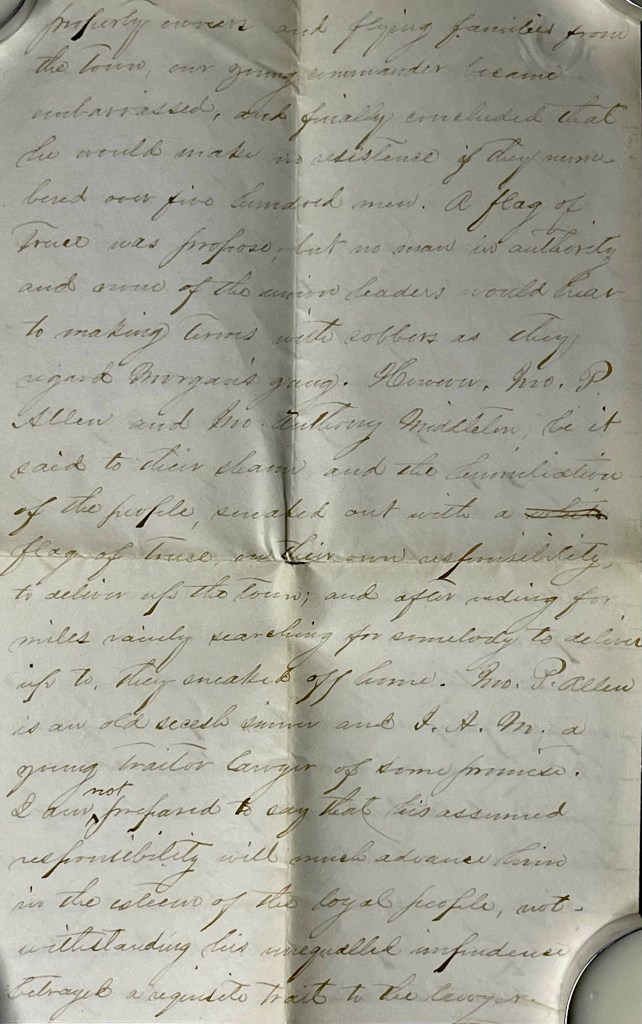 property owners and flying families from
the town, our young commander became
embarrassed, and finally concluded that
he would make no resistence if they num-
bered over five hundred men. A flag of
truce was propose, but no man in authority
and none of the union leaders would hear
to making terms with robbers as they
regard Morgan's gang. However, Jno. P
Allen and Jno. Anthony Middleton, be it
said to their shame, and the humiliation
of the people, sneaked out with a white
flag of truce, on their own responsibility,
to deliver up the town; and after riding for
miles vainly searching for somebody to deliver
up to, they sneaked off home. Jno. P. Allen
is an old secesh sinner and J. A. M. a
young traitor lawyer of some promise.
I am not prepared to say that his assumed
responsibility will much advance him
in the esteem of the loyal people, not-
withstanding his unequalled impudence
betrayed a requisite trait to the lawyer